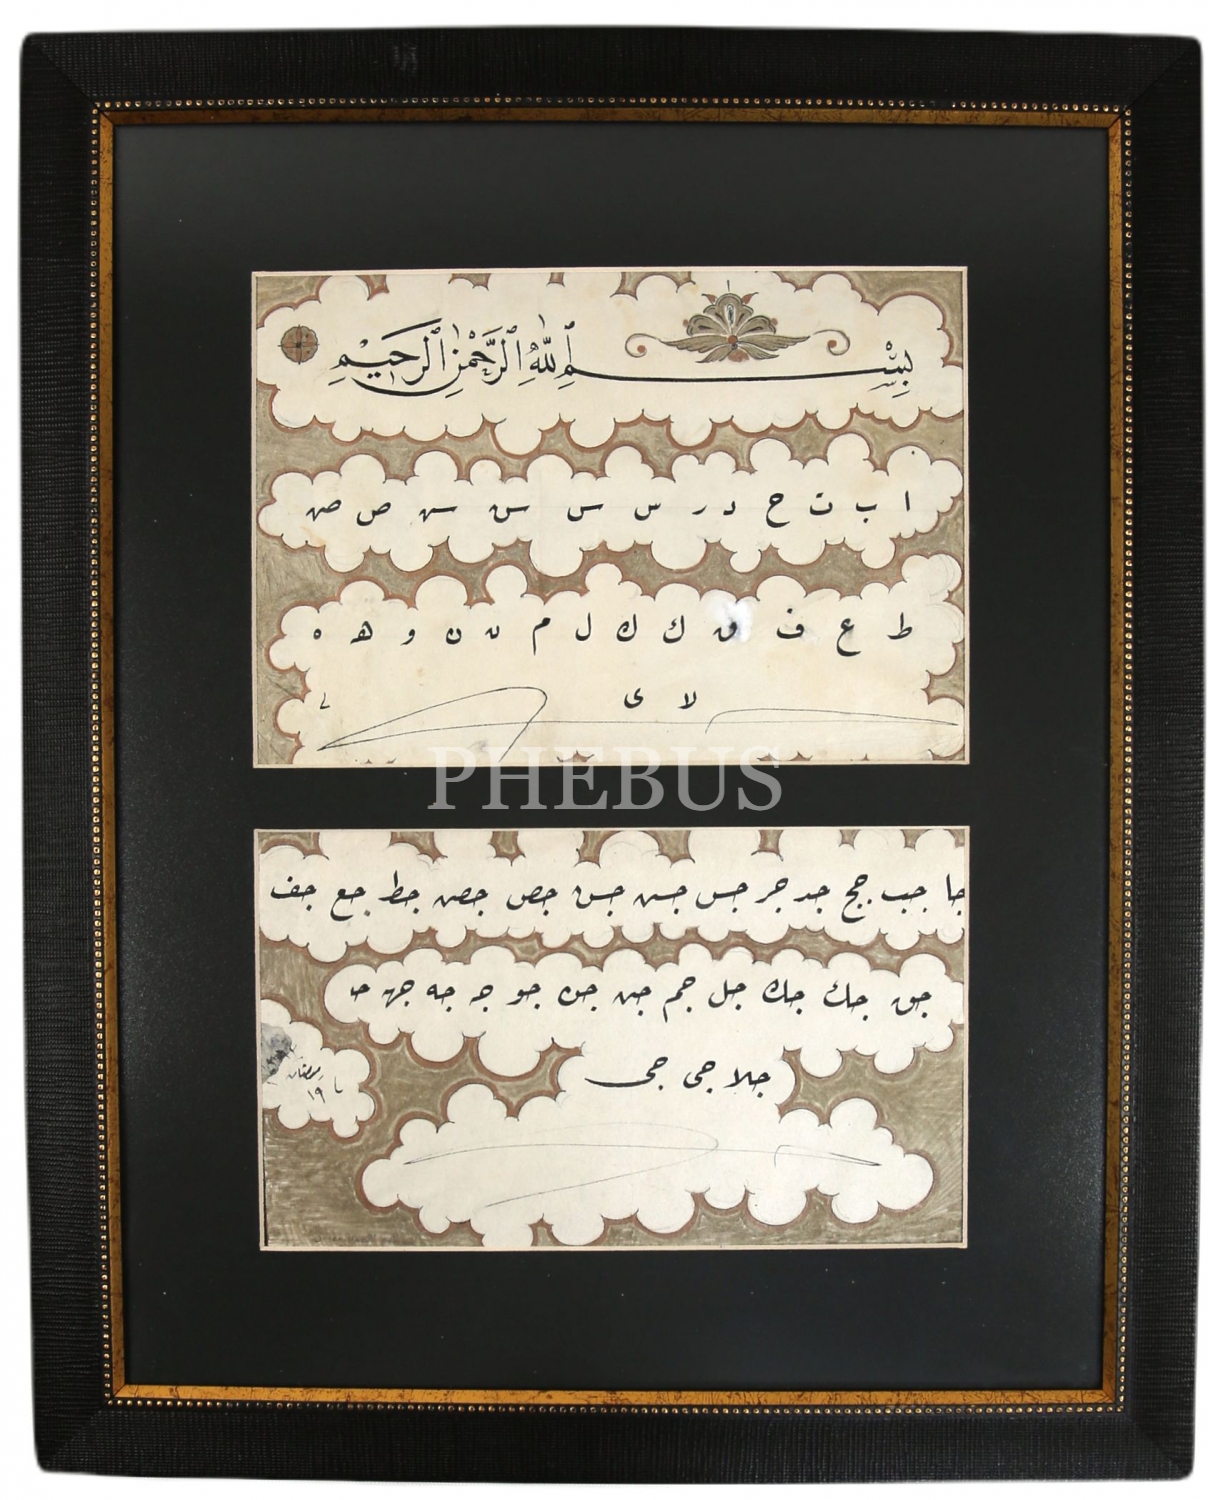 بِسْمِ ٱللّٰهِ ٱلرَّحْمٰنِ ٱلرَّحِيْمِ
ا ب ت ح د ر س س س س ص ص
ط ع ف ق ك ك ل م ن ن و هـ ه
لا ى
PHEBUS
جا جب جج جد جر جس جس جس جص جص جط جع جف
جق جك جك جل جم جن جن جو جه جه جه
جلا جى جى
رمضان
١٩